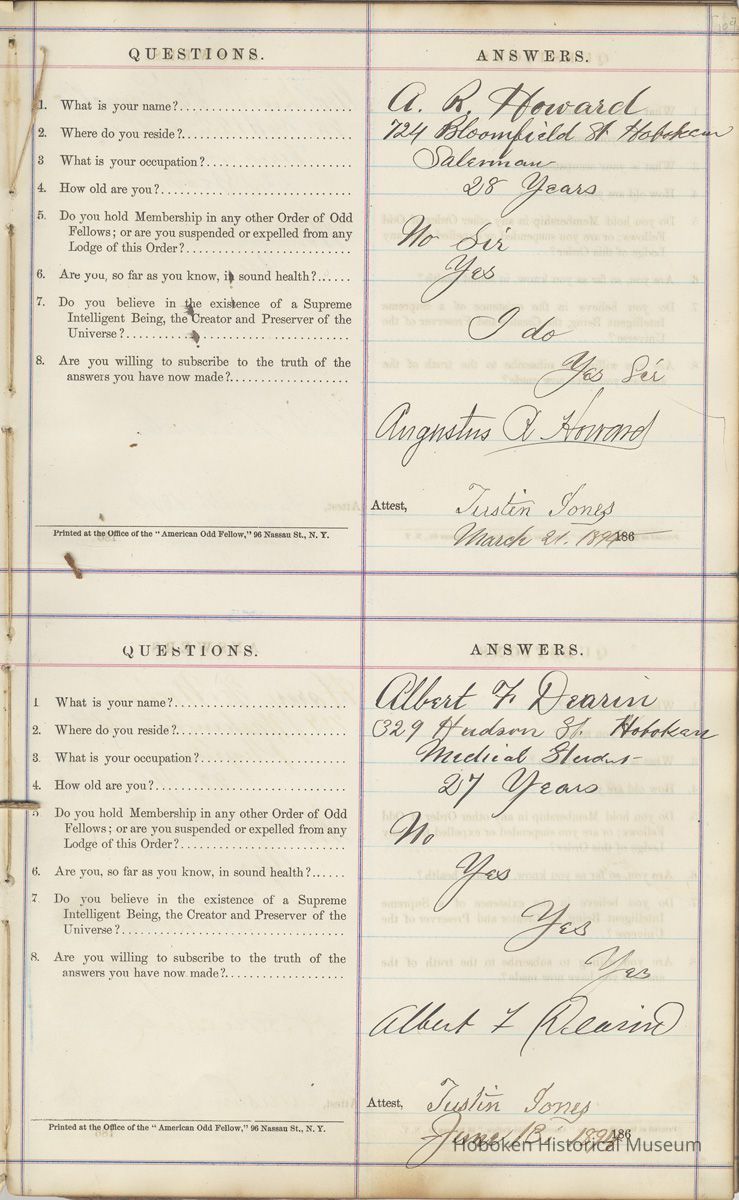 QUESTIONS. ANSWERS.
1. What is your name? A. R. Howard
2. Where do you reside? 724 Bloomfield St Hoboken
3 What is your occupation? Salesman
4. How old are you? 28 Years
5. Do you hold Membership in any other Order of Odd
Fellows; or are you suspended or expelled from any
Lodge of this Order? No Sir
6. Are you, so far as you know, in sound health? Yes
7. Do you believe in the existence of a Supreme
Intelligent Being, the Creator and Preserver of the
Universe? I do
8. Are you willing to subscribe to the truth of the
answers you have now made? Yes Sir
Augustus R Howard
Attest, Justin Jones
Printed at the Office of the "American Odd Fellow," 96 Nassau St., N. Y.
March 21. 186
QUESTIONS. ANSWERS.
1 What is your name? Albert F Dearin
2. Where do you reside? 329 Hudson St. Hoboken
3. What is your occupation? Medical Student
4. How old are you? 27 Years
5 Do you hold Membership in any other Order of Odd
Fellows; or are you suspended or expelled from any
Lodge of this Order? No
6. Are you, so far as you know, in sound health? Yes
7 Do you believe in the existence of a Supreme
Intelligent Being, the Creator and Preserver of the
Universe? Yes
8. Are you willing to subscribe to the truth of the
answers you have now made? Yes
Albert F Dearin
Attest, Justin Jones
Printed at the Office of the "American Odd Fellow," 96 Nassau St., N. Y.
June 186
Hoboken Historical Museum